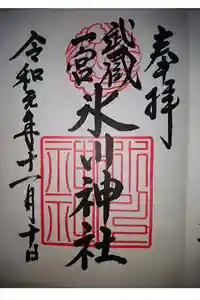 奉拝
武蔵
一宮
氷川神社
令和元年十一月十日